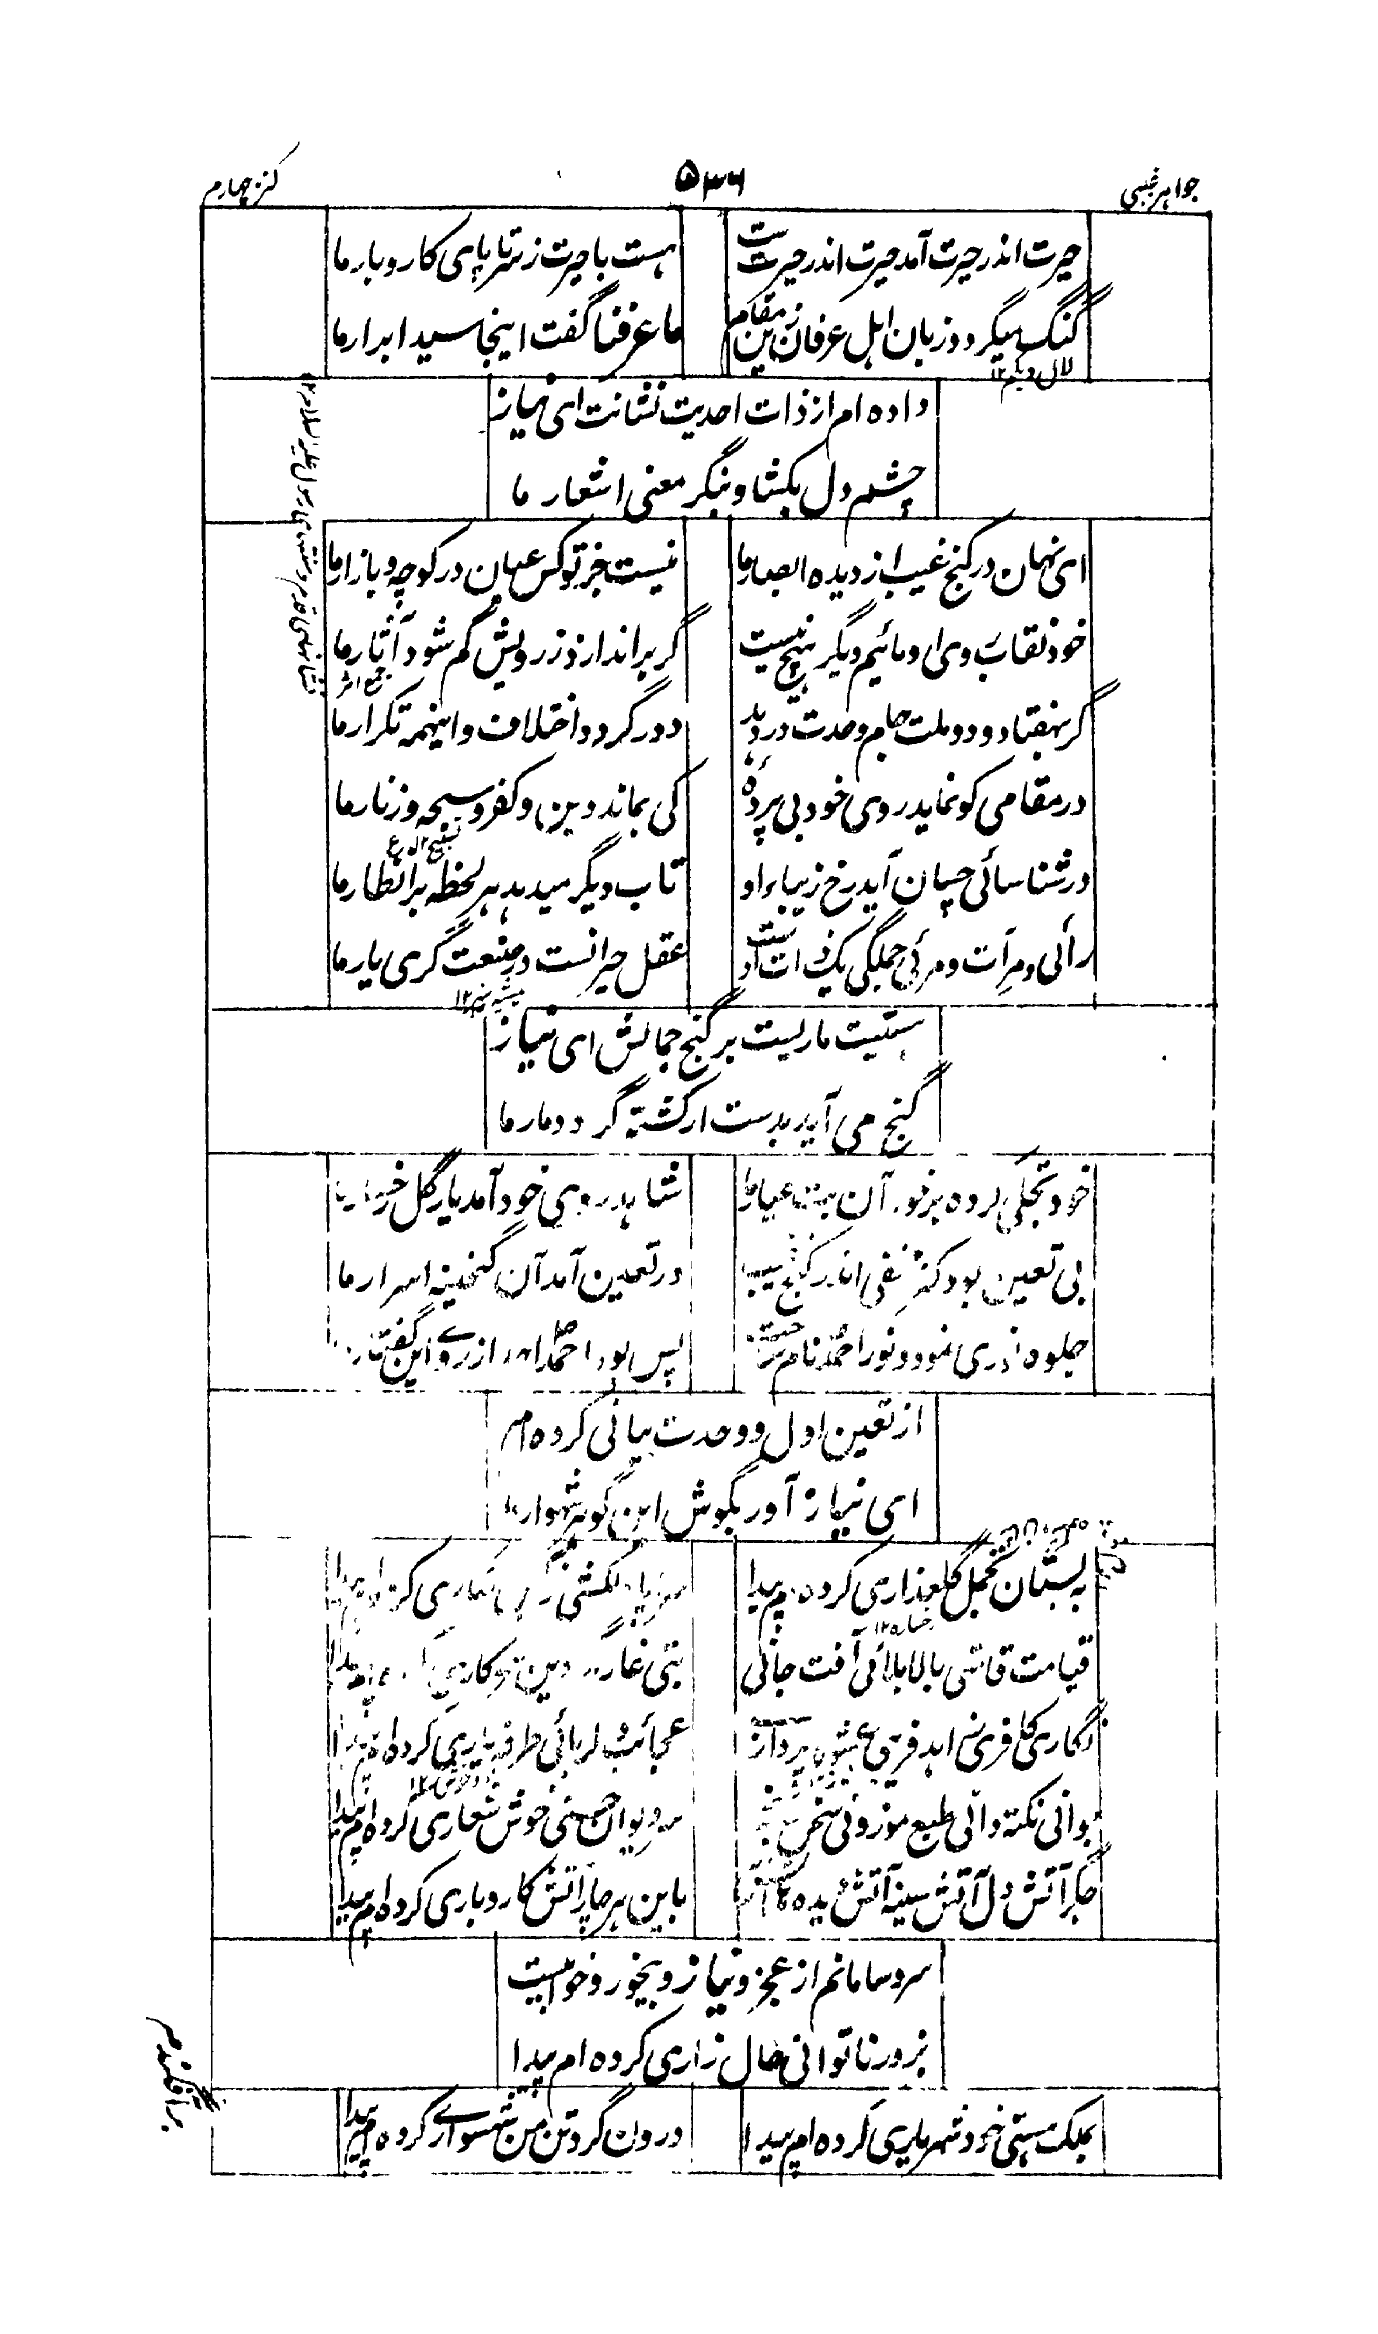 جواهر غیبی
۵۳۶
کنز چهارم
حیرت اندر حیرت آمد حیرت اندر حیرت ست
هست با حیرت ز سر تا پای کار و بار ما
گنگ میگردد زبان اهل عرفان زین مقام
ما عرفنا گفت اینجا سید ابرار ما
داده ام از ذات احدیت نشانت ای نیاز
چشم دل بکشا و بنگر معنی اشعار ما
ای نهان در کنج غیب از دیده ابصار ما
نیست جز تو کس عیان در کوچه و بازار ما
خود نقاب روی او مائیم دیگر هیچ نیست
گر براندازد ز رویش گم شود آثار ما
جمع اثر
گر بهفتاد و دو ملت جام وحدت در دهد
دور گردد اختلاف و اینهمه تکرار ما
در مقامی کو نماید روی خود بی پرده
کی بماند دین و کفر و سبحه و زنار ما
در شناسائی چسان آید رخ زیبای او
تاب دیگر میدهد هر لحظه بر انظار ما
رائی و مرآت و مرئی جملگی یک ذات اوست
عقل حیرانست در صنعت گری یار ما
هستیت ماریست بر گنج جمالش ای نیاز
گنج می آید بدست ار کشته گردد مار ما
خود تجلی کرده بر خود آن بت عیار ما
شاهد روی خود آمد یار گل رخسار ما
بی تعین بود کنز مخفی اندر کنج غیب
در تعین آمد آن گنجینه اسرار ما
جلوه نمود و نور احمد نام
پس بود احمد از روی این گفتار
از تعین اول و وحدت بیانی کرده ام
ای نیاز آور بگوش این گوهر شهوار ما
به بستان تجمل گلعذاری کرده ام پیدا
کرده ام پیدا
قیامت قامتی بالا بلائی آفت جانی
بتی غارت دین
نگاری کافری زاهد فریبی عشوه پردازی
عجائب دلربائی طرفه یاری کرده ام پیدا
جوانی نکته دانی طبع موزونی سخن
خوش شعاری کرده ام پیدا
جگر آتش دل آتش سینه آتش دیده
باین هر چار آتش کاروباری کرده ام پیدا
سر و سامانم از عجز و نیاز و بیخور و خوابیست
بزور ناتوانی حال زاری کرده ام پیدا
بملک هستی خود شهریاری کرده ام پیدا
درون گرد تن من شهسواری کرده ام پیدا
برافگندم